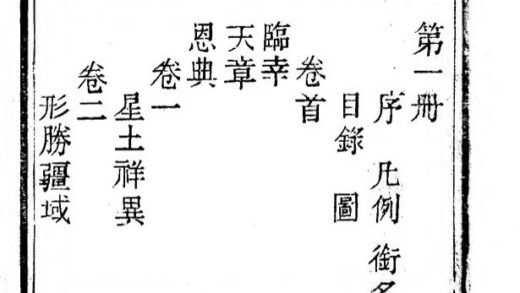 第一册
序 凡例 銜名
目錄 圖
卷首
臨幸
天章
恩典
卷一
星土祥異
卷二
形勝疆域